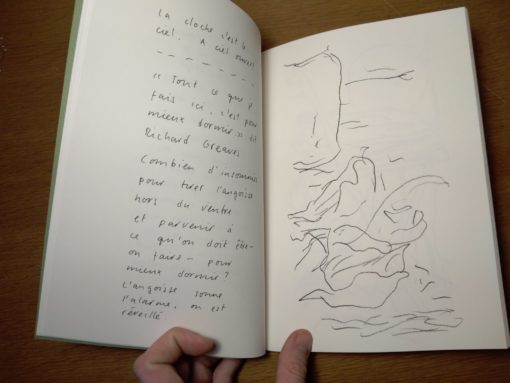 La cloche c'est le
ciel. A ciel ouvert
- - - - - - -
« Tout ce que je
fais ici, c'est pour
mieux dormir. » dit
Richard Greaves
Combien d'insomnies
pour tirer l'angoisse
hors du ventre
et parvenir à
ce qu'on doit être-
ou faire - pour
mieux dormir ?
L'angoisse sonne
l'alarme. on est
réveillé